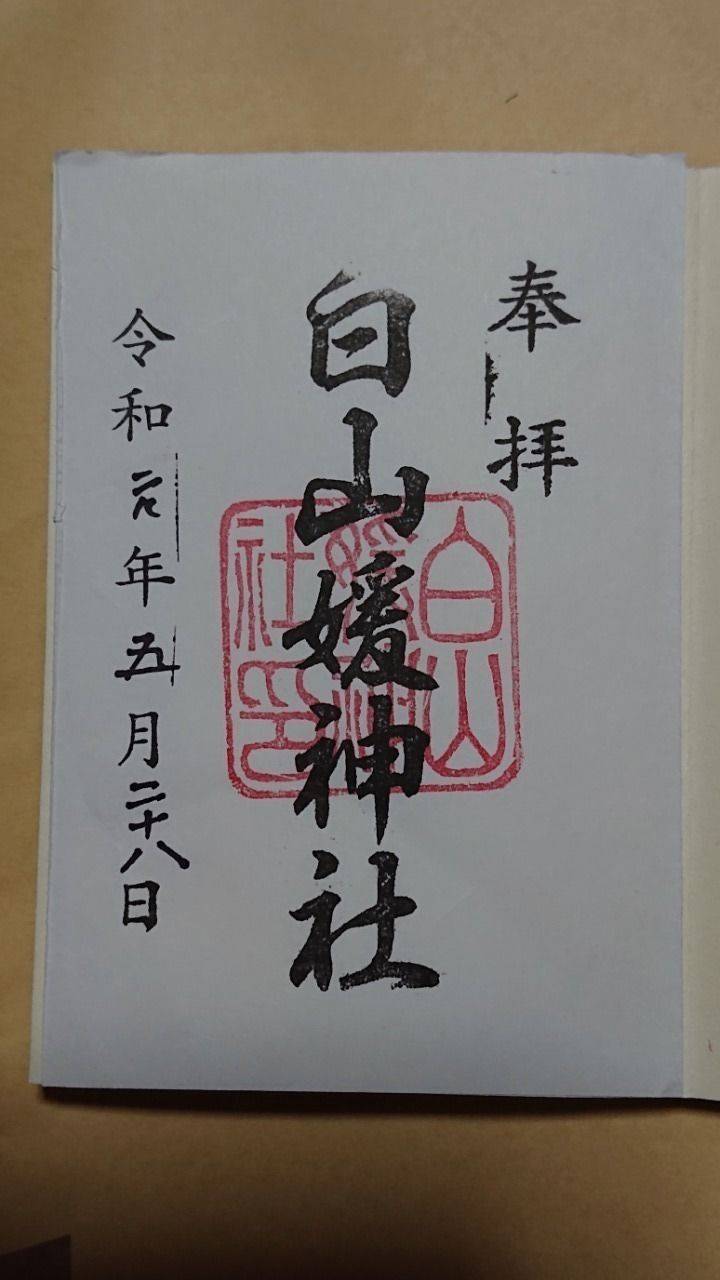 奉拝
白山媛神社
白山媛神社印
令和元年五月二十八日